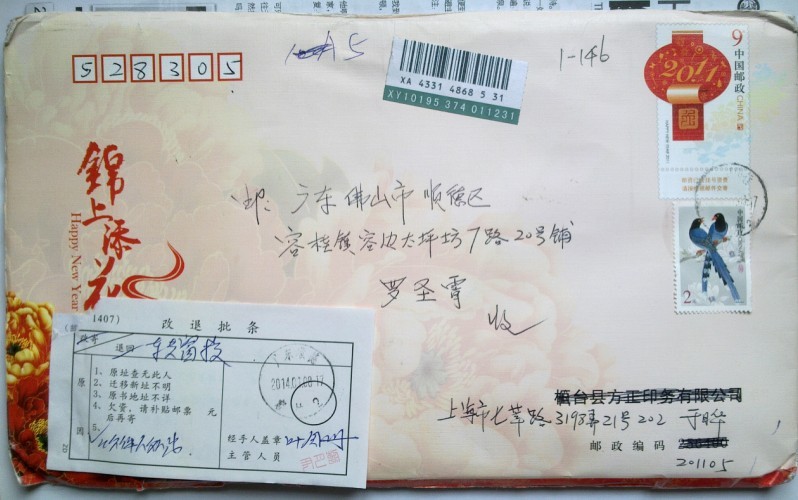 528305
A5
XA 4331 4868 5 31
XY10195 374 011231
1-146
9
中国邮政
CHINA
2011
錦上添花
Happy New Year
邮: 广东佛山市顺德区
容桂镇容边大坪坊7路20号铺
罗圣霄
收
2
中国邮政
(1407)
改退批条
退回
原因
1、原址查无此人
2、迁移新址不明
3、原书地址不详
4、欠资，请补贴邮票 元
后再寄
5、
经手人盖章
主管人员
2014.01.08.17
桓台县方正印务有限公司
上海市七莘路3198弄21号202 于晔
邮政编码
201105